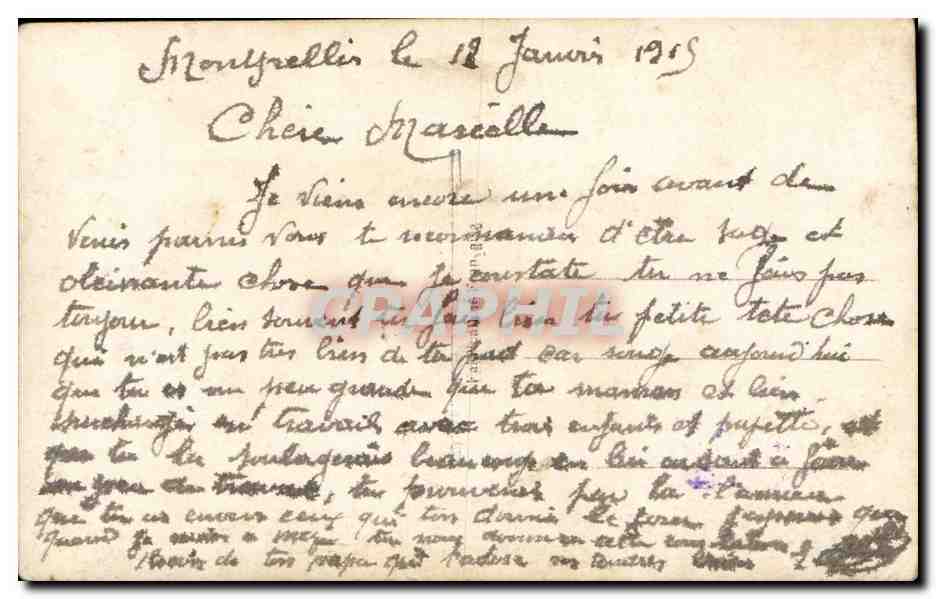 Montpellier le 12 Janvis 1915
Chère Marcelle
Je viens encore une fois avant de
venir parmis vous te recommander d'être sage et
obeissante chose que je constate tu ne fais pas
toujour, bien souvent tu fais bien ta petite tete chose
qui n'est pas tres bien de ta part car songe aujourd'hui
que tu es un peu grande que ta maman est bien
en travail avec trois enfants et pupette, et
que tu la soulagerais beaucoup en lui aidant a faire
un peu de travail, tu prouveras par la l'amour
que tu as envers ceux qui ton donné le jour j'espere que
quand je tu nous donneras cette consolation
de ton papa qui t'adore
CPAPHIL